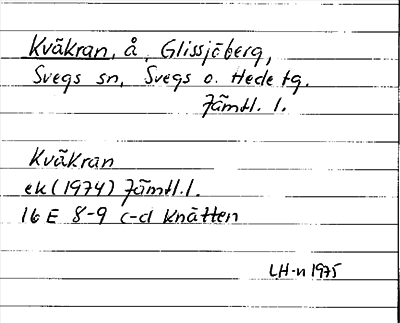 Kväkran, å, Glissjöberg,
Svegs sn, Svegs o. Hede tg.
Jämtl. l.
Kväkran
ek (1974) Jämtl. l.
16 E 8-9 c-d Knätten
LH-n 1975